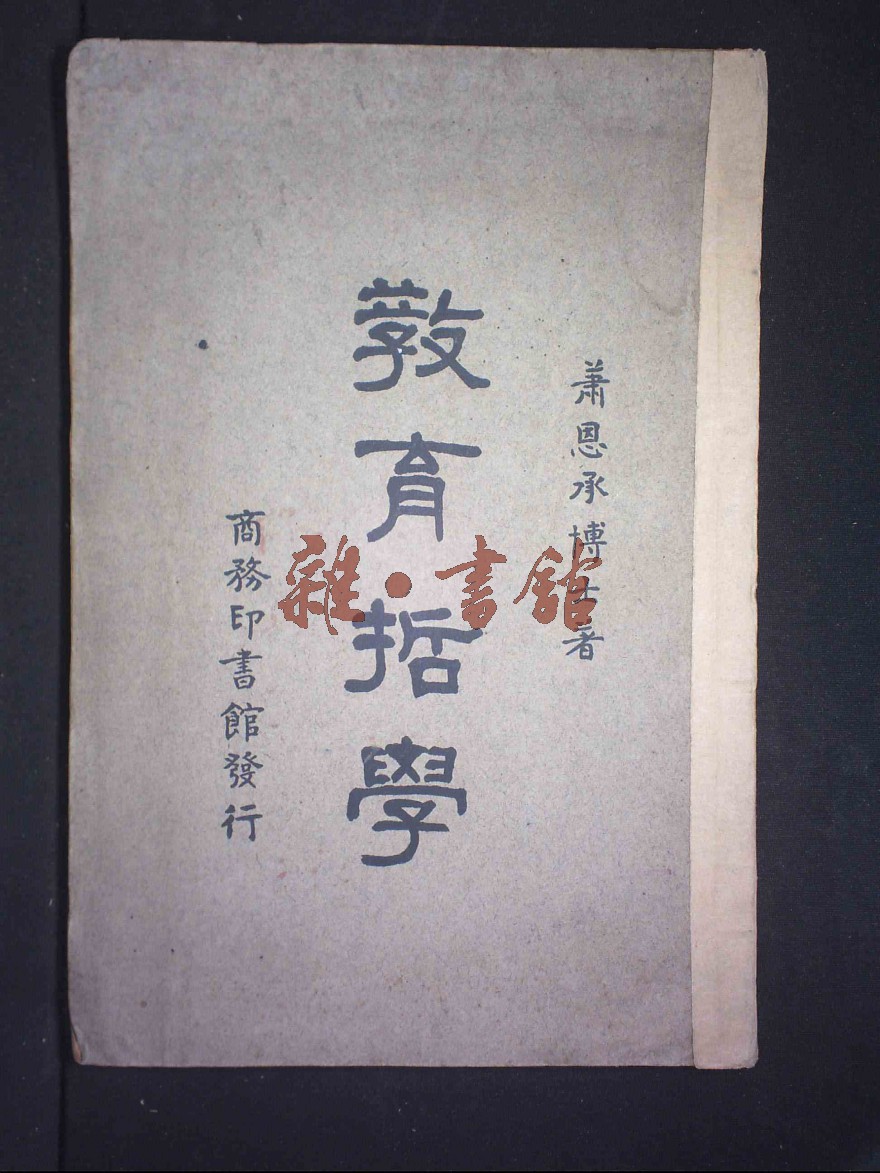 蕭恩承博士著
教育哲學
商務印書館發行
雜·書館